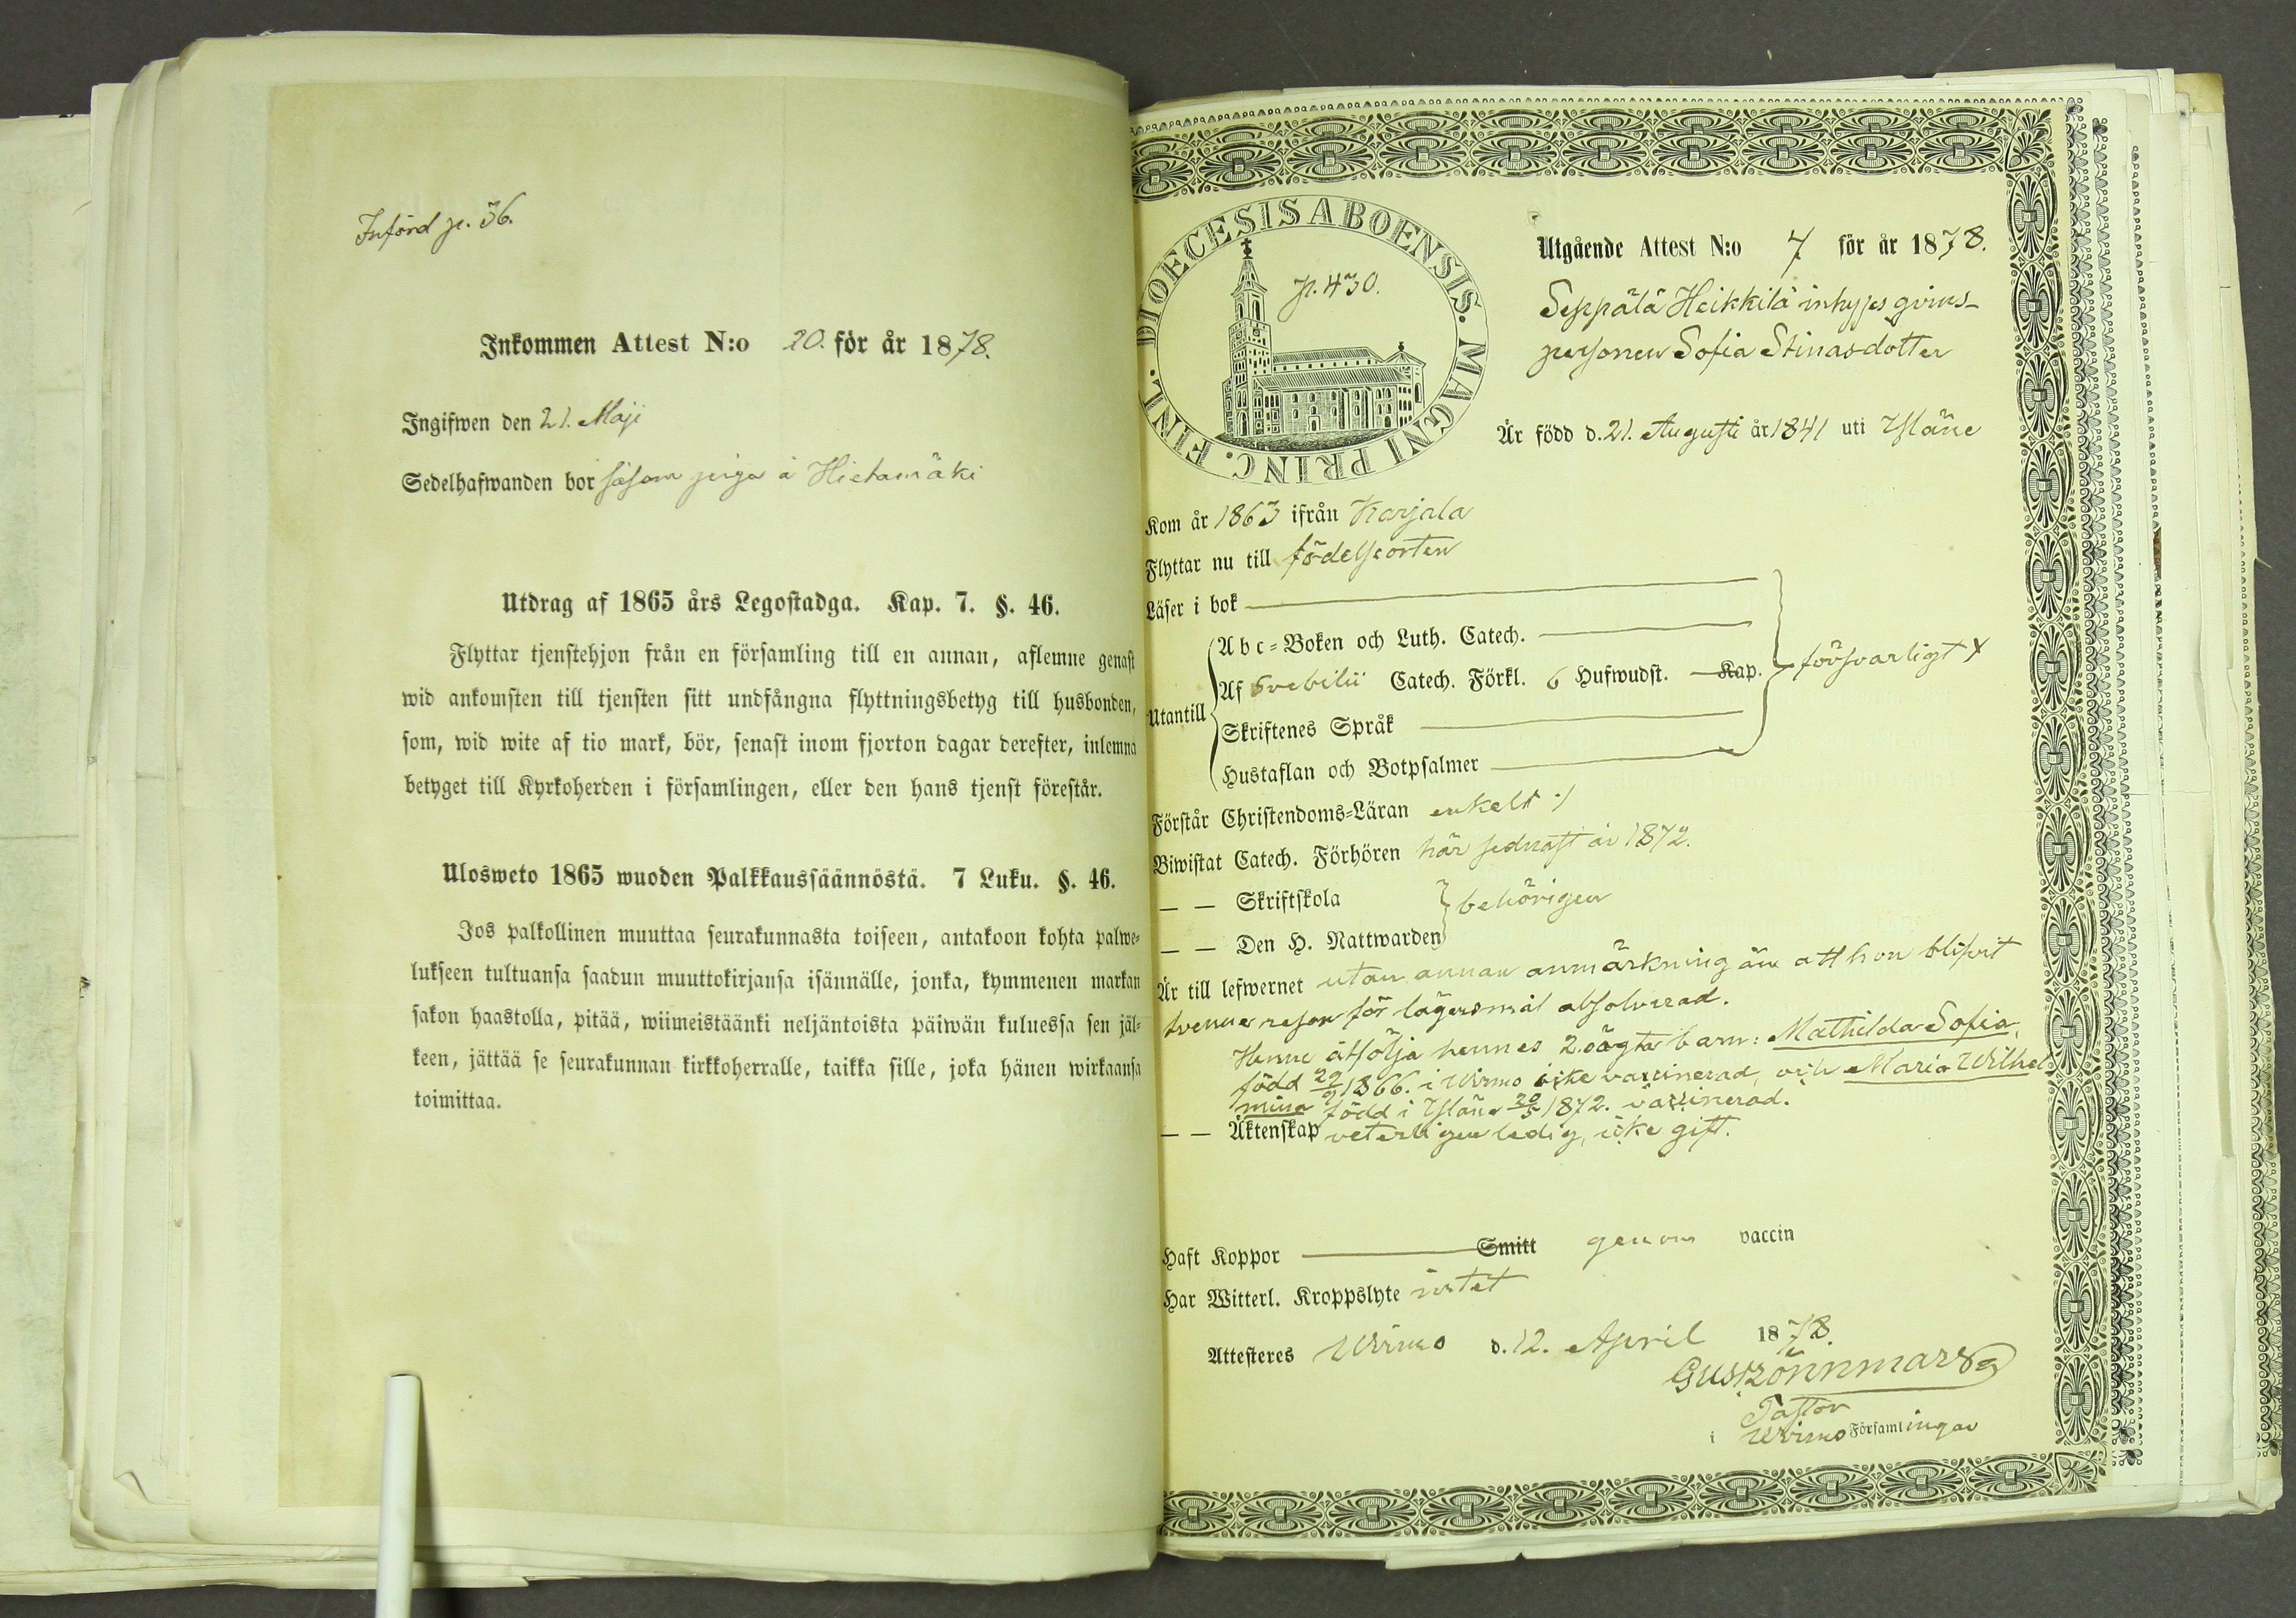 Införd p. 36.
Inkommen Attest N:o 20. för år 1878.
Ingifwen den 21. Maji
Sedelhafwanden bor såsom piga å Hietamäki
Utdrag af 1865 års Legostadga. Kap. 7. §. 46.
Flyttar tjenstehjon från en församling till en annan, aflemne genast
wid ankomsten till tjensten sitt undfångna flyttningsbetyg till husbonden,
som, wid wite af tio mark, bör, senast inom fjorton dagar derefter, inlemna
betyget till Kyrkoherden i församlingen, eller den hans tjenst förestår.
Ulosweto 1865 wuoden Palkkaussäännöstä. 7 Luku. §. 46.
Jos palkollinen muuttaa seurakunnasta toiseen, antakoon kohta palwe-
lukseen tultuansa saadun muuttokirjansa isännälle, jonka, kymmenen markan
sakon haastolla, pitää, wiimeistäänki neljäntoista päiwän kuluessa sen jäl-
keen, jättää se seurakunnan kirkkoherralle, taikka sille, joka hänen wirkaansa
toimittaa.
DIOECESIS ABOENSIS. MAGNI PRINC. FINL.
p. 430.
Utgående Attest N:o 7 för år 1878.
Seppälä Heikkilä inhyses qvins-
personen Sofia Stinasdotter
Är född d. 21. Augusti år 1841 uti Yläne
Kom år 1863 ifrån Karjala
Flyttar nu till födelseorten
Läser i bok
Utantill
Abc-Boken och Luth. Catech.
Af Svebilii Catech. Förkl. 6 Hufwudst. Kap. försvarligt
Skriftenes Språk
Hustaflan och Botpsalmer
Förstår Christendoms-Läran enkelt
Biwistat Catech. Förhören här sednast år 1872.
— — Skriftskola behörigen
— — Den H. Nattwarden
Är till lefwernet utan annan anmärkning än att hon blifvit
tvenne resor för lägersmål absolverad.
Henne åtfölja hennes 2 oägta barn: Mathilda Sofia,
född 29/9 1866. i Wirmo icke vaccinerad, och Maria Wilhel-
mina född i Yläne 20/5 1872. vaccinerad.
— — Äktenskap veterligen ledig, icke gift.
Haft Koppor Smitt genom vaccin
Har Witterl. Kroppslyte intet
Attesteres Wirmo d. 12. April 1878.
Gust Rönnmark
Pastor
i Wirmo Församlingar